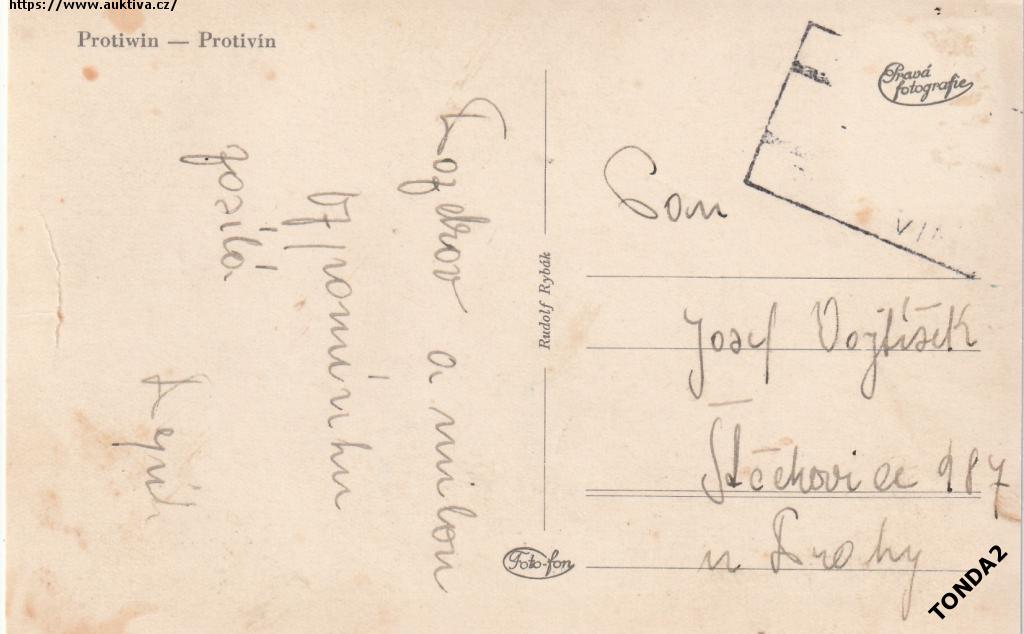 https://www.auktiva.cz/
Protiwin — Protivín
Pravá
fotografie
Pozdrav a milou
vzpomínku
posílá
Rudolf Rybák
Foto-fon
Pan
Josef Vojtíšek
Štěchovice 987
u Prahy
TONDA2